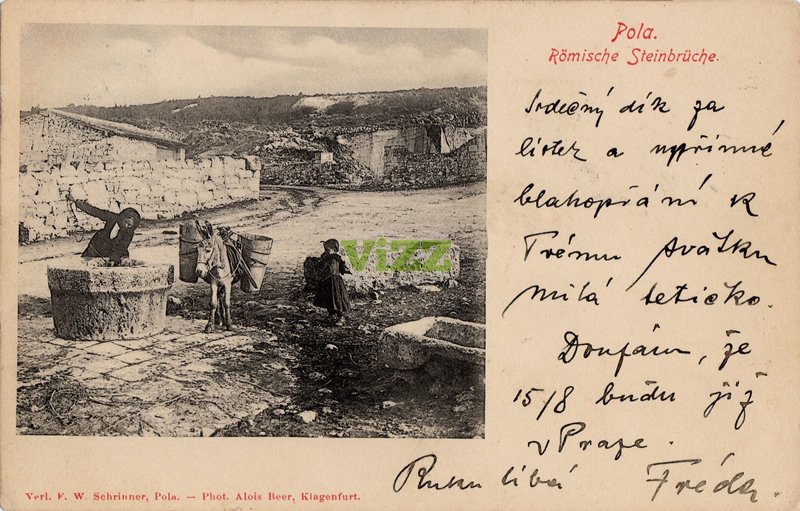 Pola.
Römische Steinbrüche.
Srdečný dík za
lístek a upřímné
blahopřání k
Tvému svátku
milá tetičko.
Doufám, že
15/8 budu již
v Praze.
Ruku líbá
Vizz
Verl. F. W. Schrinner, Pola. — Phot. Alois Beer, Klagenfurt.